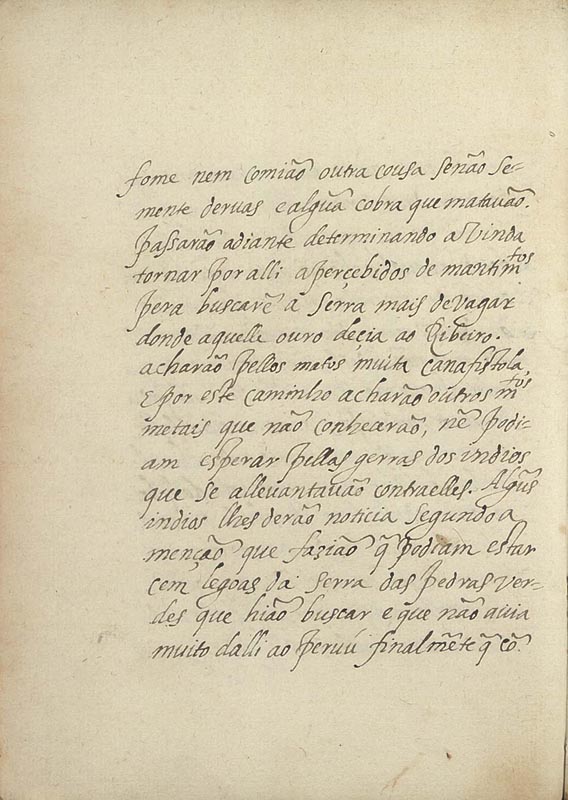 fome nem comião outra cousa senão se-
mente deruas e algũa cobra que matauão.
Passarão adiante determinando a vinda
tornar por alli aperçebidos de mantimtos
pera buscarẽ a serra mais de vagar
donde aquelle ouro deçia ao Ribeiro.
acharão pellos matos muita canafistola,
E por este caminho acharão outros mtos
metais que não conheçerão, nẽ podi-
am esperar pellas gerras dos indios
que se alleuantauão contraelles. Algũs
indios lhes derão noticia segundo a
menção que fazião q̃ podiam estar
cem legoas da serra das pedras ver-
des que hião buscar e que não auia
muito dalli ao peruú finalmẽte q̃ cõ